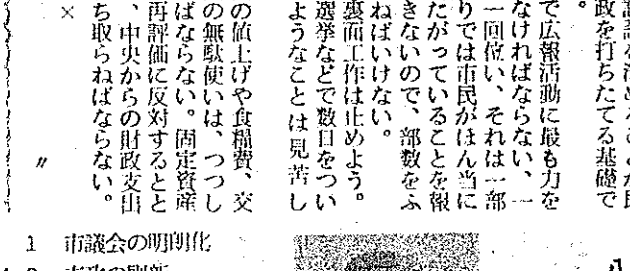 政を打ちたてる基礎で
。
で広報活動に最も力を
なければならない、一
一回位い、それは一部
りでは市民がほん当に
たがっていることを報
きないので、部数をふ
ねばいけない。
裏面工作は止めよう。
選挙などで数日をつい
ようなことは見苦し
の値上げや食糧費、交
の無駄使いは、つつし
ばならない。固定資産
再評価に反対するとと
、中央からの財政支出
ち取らねばならない。
×
〃
1 市議会の明朗化
2 市政の刷新